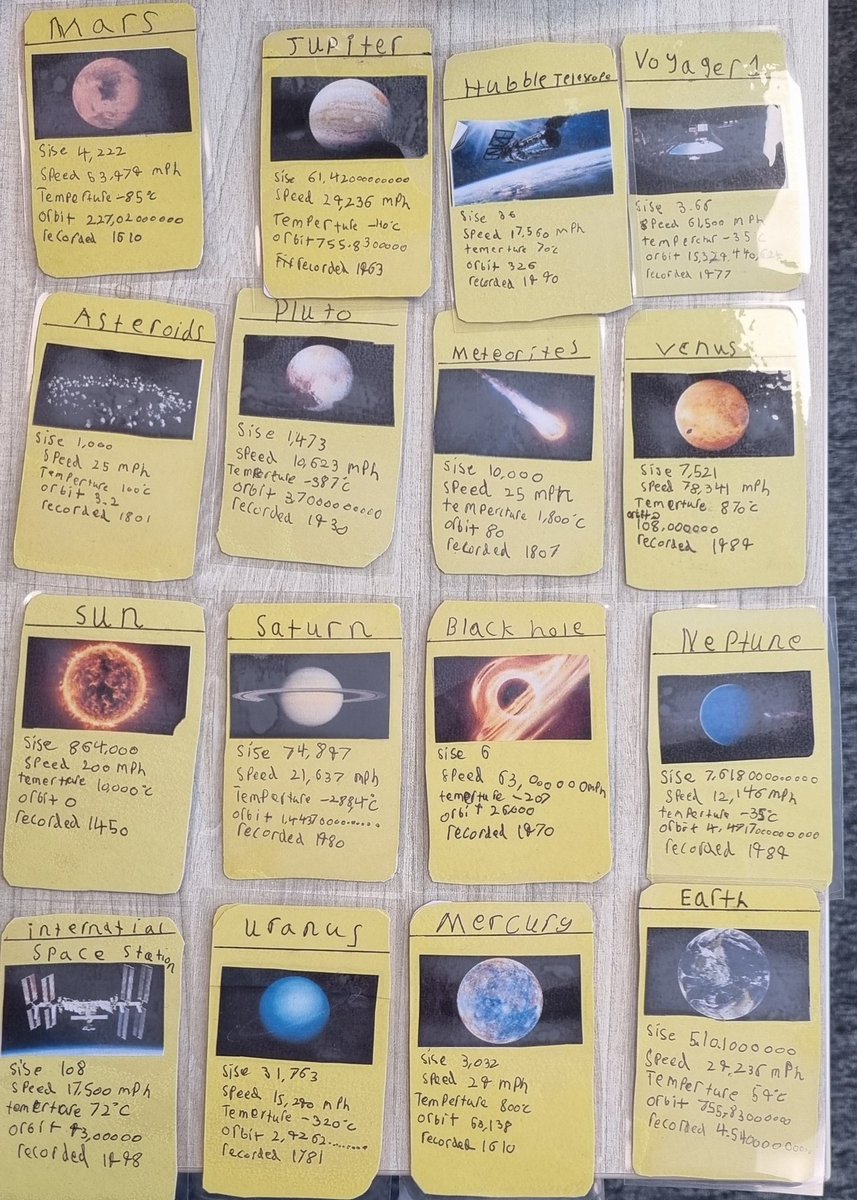 Mars
Sise 4,222
Speed 53,979 mph
Temperture -85°c
orbit 227,02000000
recorded 1610
Jupiter
Sise 61,420000000
Speed 29,236 mph
Temperture -110°c
orbit 755.8300000
recorded 1963
Hubble Telescope
Sise 36
Speed 17,560 mph
temerture 70°c
orbit 326
recorded 1990
Voyager 1
Sise 3.66
Speed 61,500 mph
temperchur -35°c
orbit
recorded 1977
Asteroids
Sise 1,000
Speed 25 mph
Temperture 100°c
orbit 3.2
recorded 1801
Pluto
Sise 1,473
Speed 10,623 mph
Temperture -387°c
orbit 3,7000000000
recorded 1930
Meteorites
Sise 10,000
Speed 25 mph
temperture 1,800°c
orbit 80
recorded 1807
Venus
Sise 7,521
Speed 78,341 mph
Temerture 870°c
orbit
108,000000
recorded 1989
Sun
Sise 864,000
Speed 200 mph
temerture 10,000°c
orbit 0
recorded 1450
Saturn
Sise 74,897
Speed 21,637 mph
Temperture -2884°c
orbit
recorded 1980
Black hole
Sise 6
Speed 63,000000mph
temperture -207
orbit 26000
recorded 1970
Neptune
Sise
Speed 12,146 mph
temperture -35°c
orbit
recorded 1989
internatial
Space Station
Sise 108
Speed 17,500 mph
temperture 72°c
orbit 93,00000
recorded 1998
Uranus
Sise 31,763
Speed 15,290 mph
Temerture -320°c
orbit
recorded 1781
Mercury
Sise 3,032
Speed 29 mph
Temperture 800°c
orbit 60,138
recorded 1610
Earth
Sise 5.10.1000000
Speed 29,236 mph
Temperture 59°c
orbit
recorded